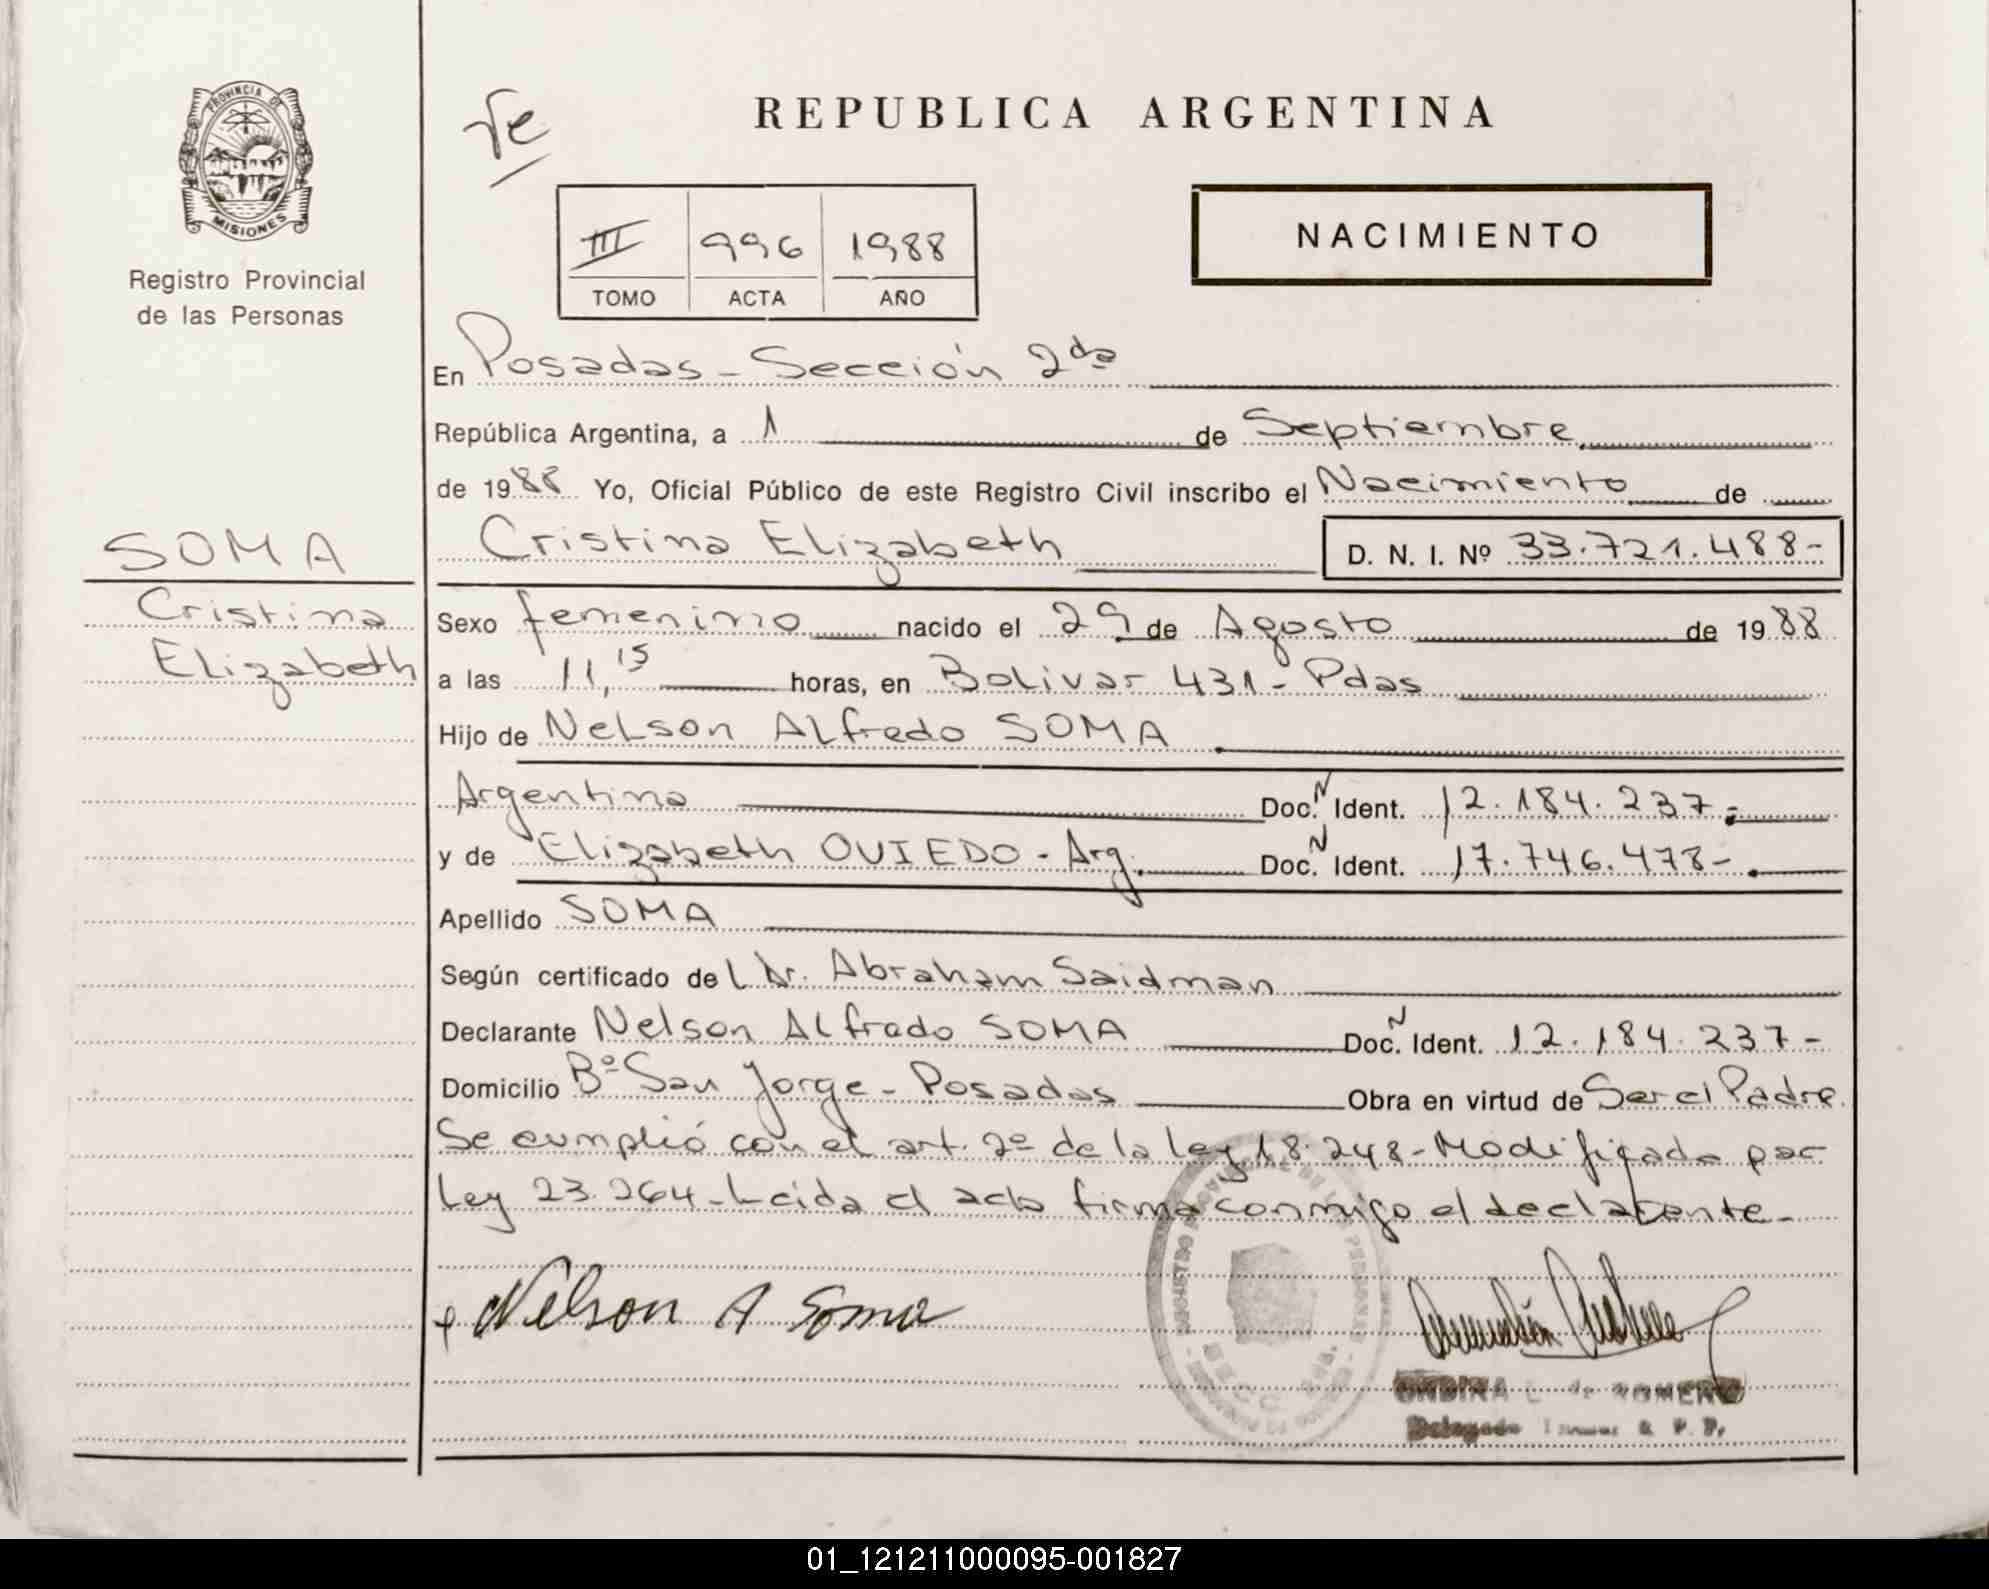 PROVINCIA DE
MISIONES
Registro Provincial
de las Personas
SOMA
Cristina
Elizabeth
REPUBLICA ARGENTINA
III 996 1988
TOMO ACTA AÑO
NACIMIENTO
En Posadas - Sección 2da
República Argentina, a 1 de Septiembre
de 1988 Yo, Oficial Público de este Registro Civil inscribo el Nacimiento de
Cristina Elizabeth D. N. I. Nº 33.721.488-
Sexo femenino nacido el 29 de Agosto de 1988
a las 11,15 horas, en Bolivar 431 - Pdas
Hijo de Nelson Alfredo SOMA
Argentino Doc. N Ident. 12.184.237.-
y de Elizabeth OVIEDO - Arg. Doc. N Ident. 17.746.478-
Apellido SOMA
Según certificado del Dr. Abraham Saidman
Declarante Nelson Alfredo SOMA Doc. N Ident. 12.184.237-
Domicilio Bº San Jorge - Posadas Obra en virtud de Ser el Padre.
Se cumplió con el art. 2º de la ley 18.248 - Modificada por
Ley 23.264 - Leida el acta firma conmigo el declarante -
Nelson A Soma
ONDINA L. de ROMERO
Delegada
01_121211000095-001827